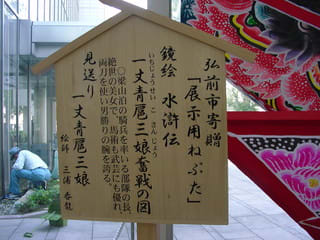 弘前市寄贈
「展示用ねぷた」
鏡絵 水滸伝
いちじょうせい こさんじょう
一丈青扈三娘奮戦の図
○梁山泊の騎兵を率いる部隊の長。
絶世の美女で、馬術も武芸にも優れ、
両刀を使い男勝りの腕を誇る。
見送り
一丈青扈三娘
絵師 三浦 呑龍